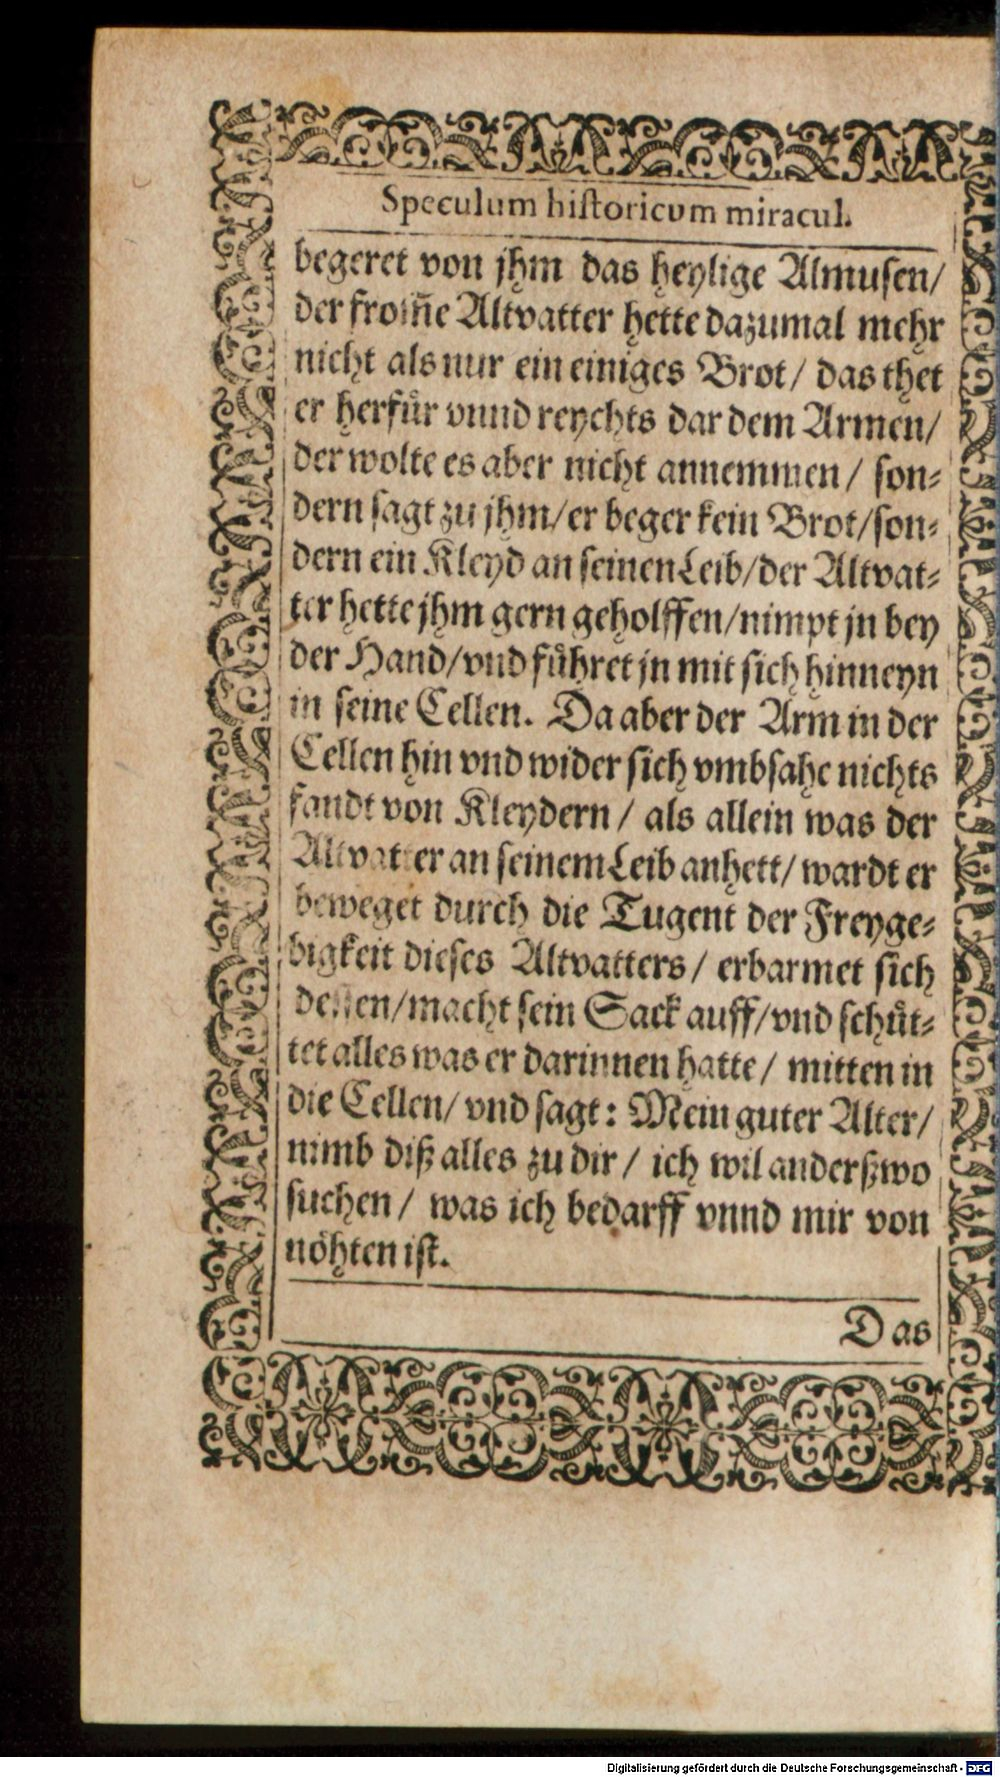 Speculum hiſtoricum miracul.
begeret von jhm das heylige Almuſen/
der from̄e Altvatter hette dazumal mehr
nicht als nur ein einiges Brot/ das thet
er herfuͤr vnnd reychts dar dem Armen/
der wolte es aber nicht annemmen/ ſon⸗
dern ſagt zu jhm/er beger kein Brot/ſon⸗
dern ein Kleyd an ſeinen Leib/der Altvat⸗
ter hette jhm gern geholffen/nimpt jn bey
der Hand/vnd fuͤhret jn mit ſich hinneyn
in ſeine Cellen. Da aber der Arm in der
Cellen hin vnd wider ſich vmbſahe nichts
fandt von Kleydern/ als allein was der
Altvatter an ſeinem Leib anhett/ wardt er
beweget durch die Tugent der Freyge⸗
bigkeit dieſes Altvatters/ erbarmet ſich
deſſen/macht ſein Sack auff/vnd ſchuͤt⸗
tet alles was er darinnen hatte/ mitten in
die Cellen/ vnd ſagt: Mein guter Alter/
nimb diß alles zu dir/ ich wil anderßwo
ſuchen/ was ich bedarff vnnd mir von
noͤhten iſt.
Das
Digitalisierung gefördert durch die Deutsche Forschungsgemeinschaft - DFG